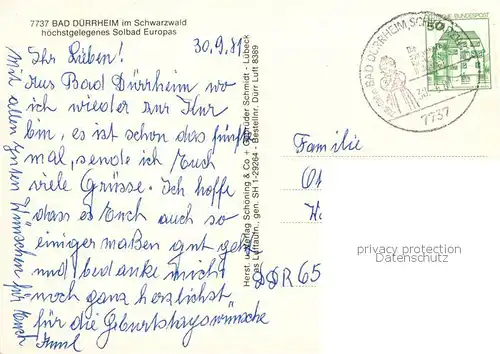 7737 BAD DÜRRHEIM im Schwarzwald
höchstgelegenes Solbad Europas
30.9.81
Ihr Lieben!
Aus Bad Dürrheim wo
ich wieder zur Kur
bin, es ist schon das fünfte
mal, sende ich Euch
viele Grüsse. Ich hoffe
dass es Euch auch so
einiger maßen gut geht
und bedanke mich
noch ganz herzlichst
für die Geburtstagswünsche
Mit allen guten Wünschen für Euch
Herst. u. Verlag Schöning & Co + Gebrüder Schmidt - Lübeck
Luftaufn., gen. SH 1-29264 - Bestellnr. Dürr Luft 8389
BAD DÜRRHEIM, SCHWARZW
7737
50
DEUTSCHE BUNDESPOST
Familie
DDR 65
privacy protection
Datenschutz